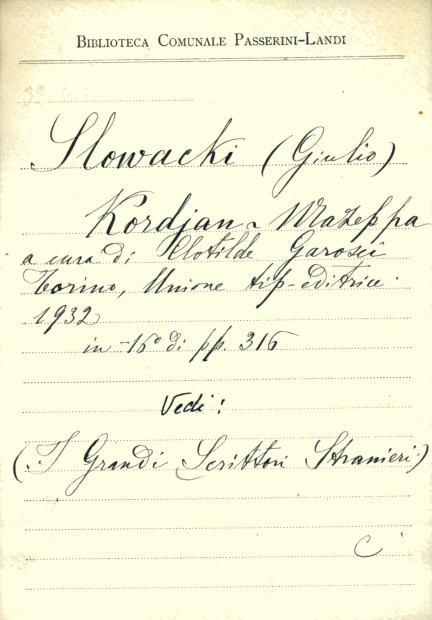 BIBLIOTECA COMUNALE PASSERINI-LANDI
Slowacki (Giulio)
Kordjan - Mazeppa
a cura di Clotilde Garosci
Torino, Unione tip-editrice.
1932
in -16° di pp. 316
Vedi:
(I Grandi Scrittori Stranieri)
C